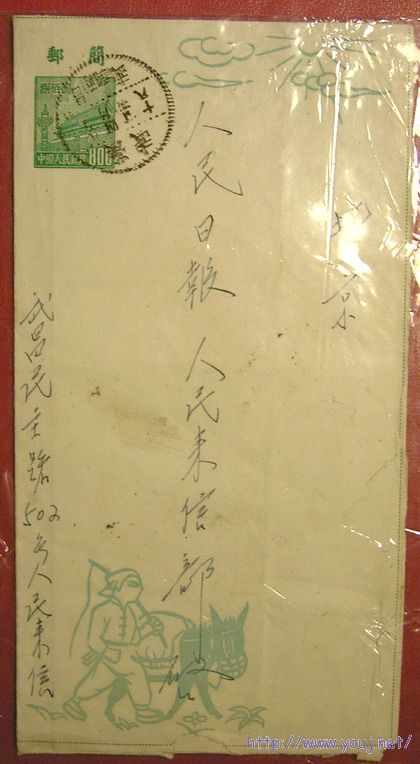 郵簡
捌佰圓
中國人民郵政
800
北京
人民日報 人民来信部
武昌民主路502号人民来信
http://www.youj.net/